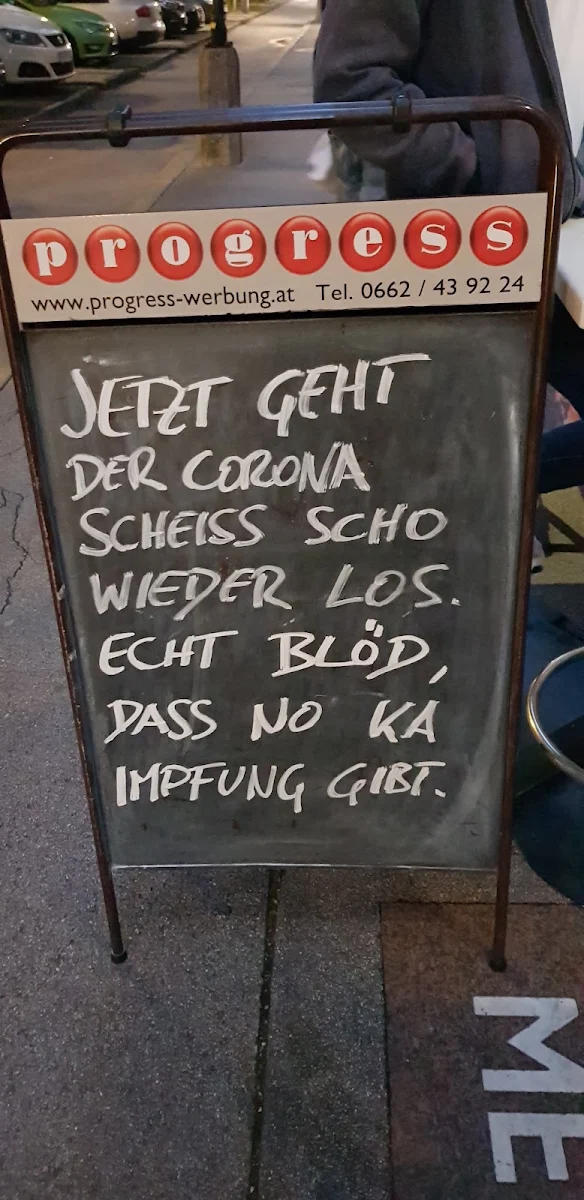 progress
www.progress-werbung.at Tel. 0662 / 43 92 24
JETZT GEHT
DER CORONA
SCHEISS SCHO
WIEDER LOS.
ECHT BLÖD,
DASS NO KA
IMPFUNG GIBT.
ME